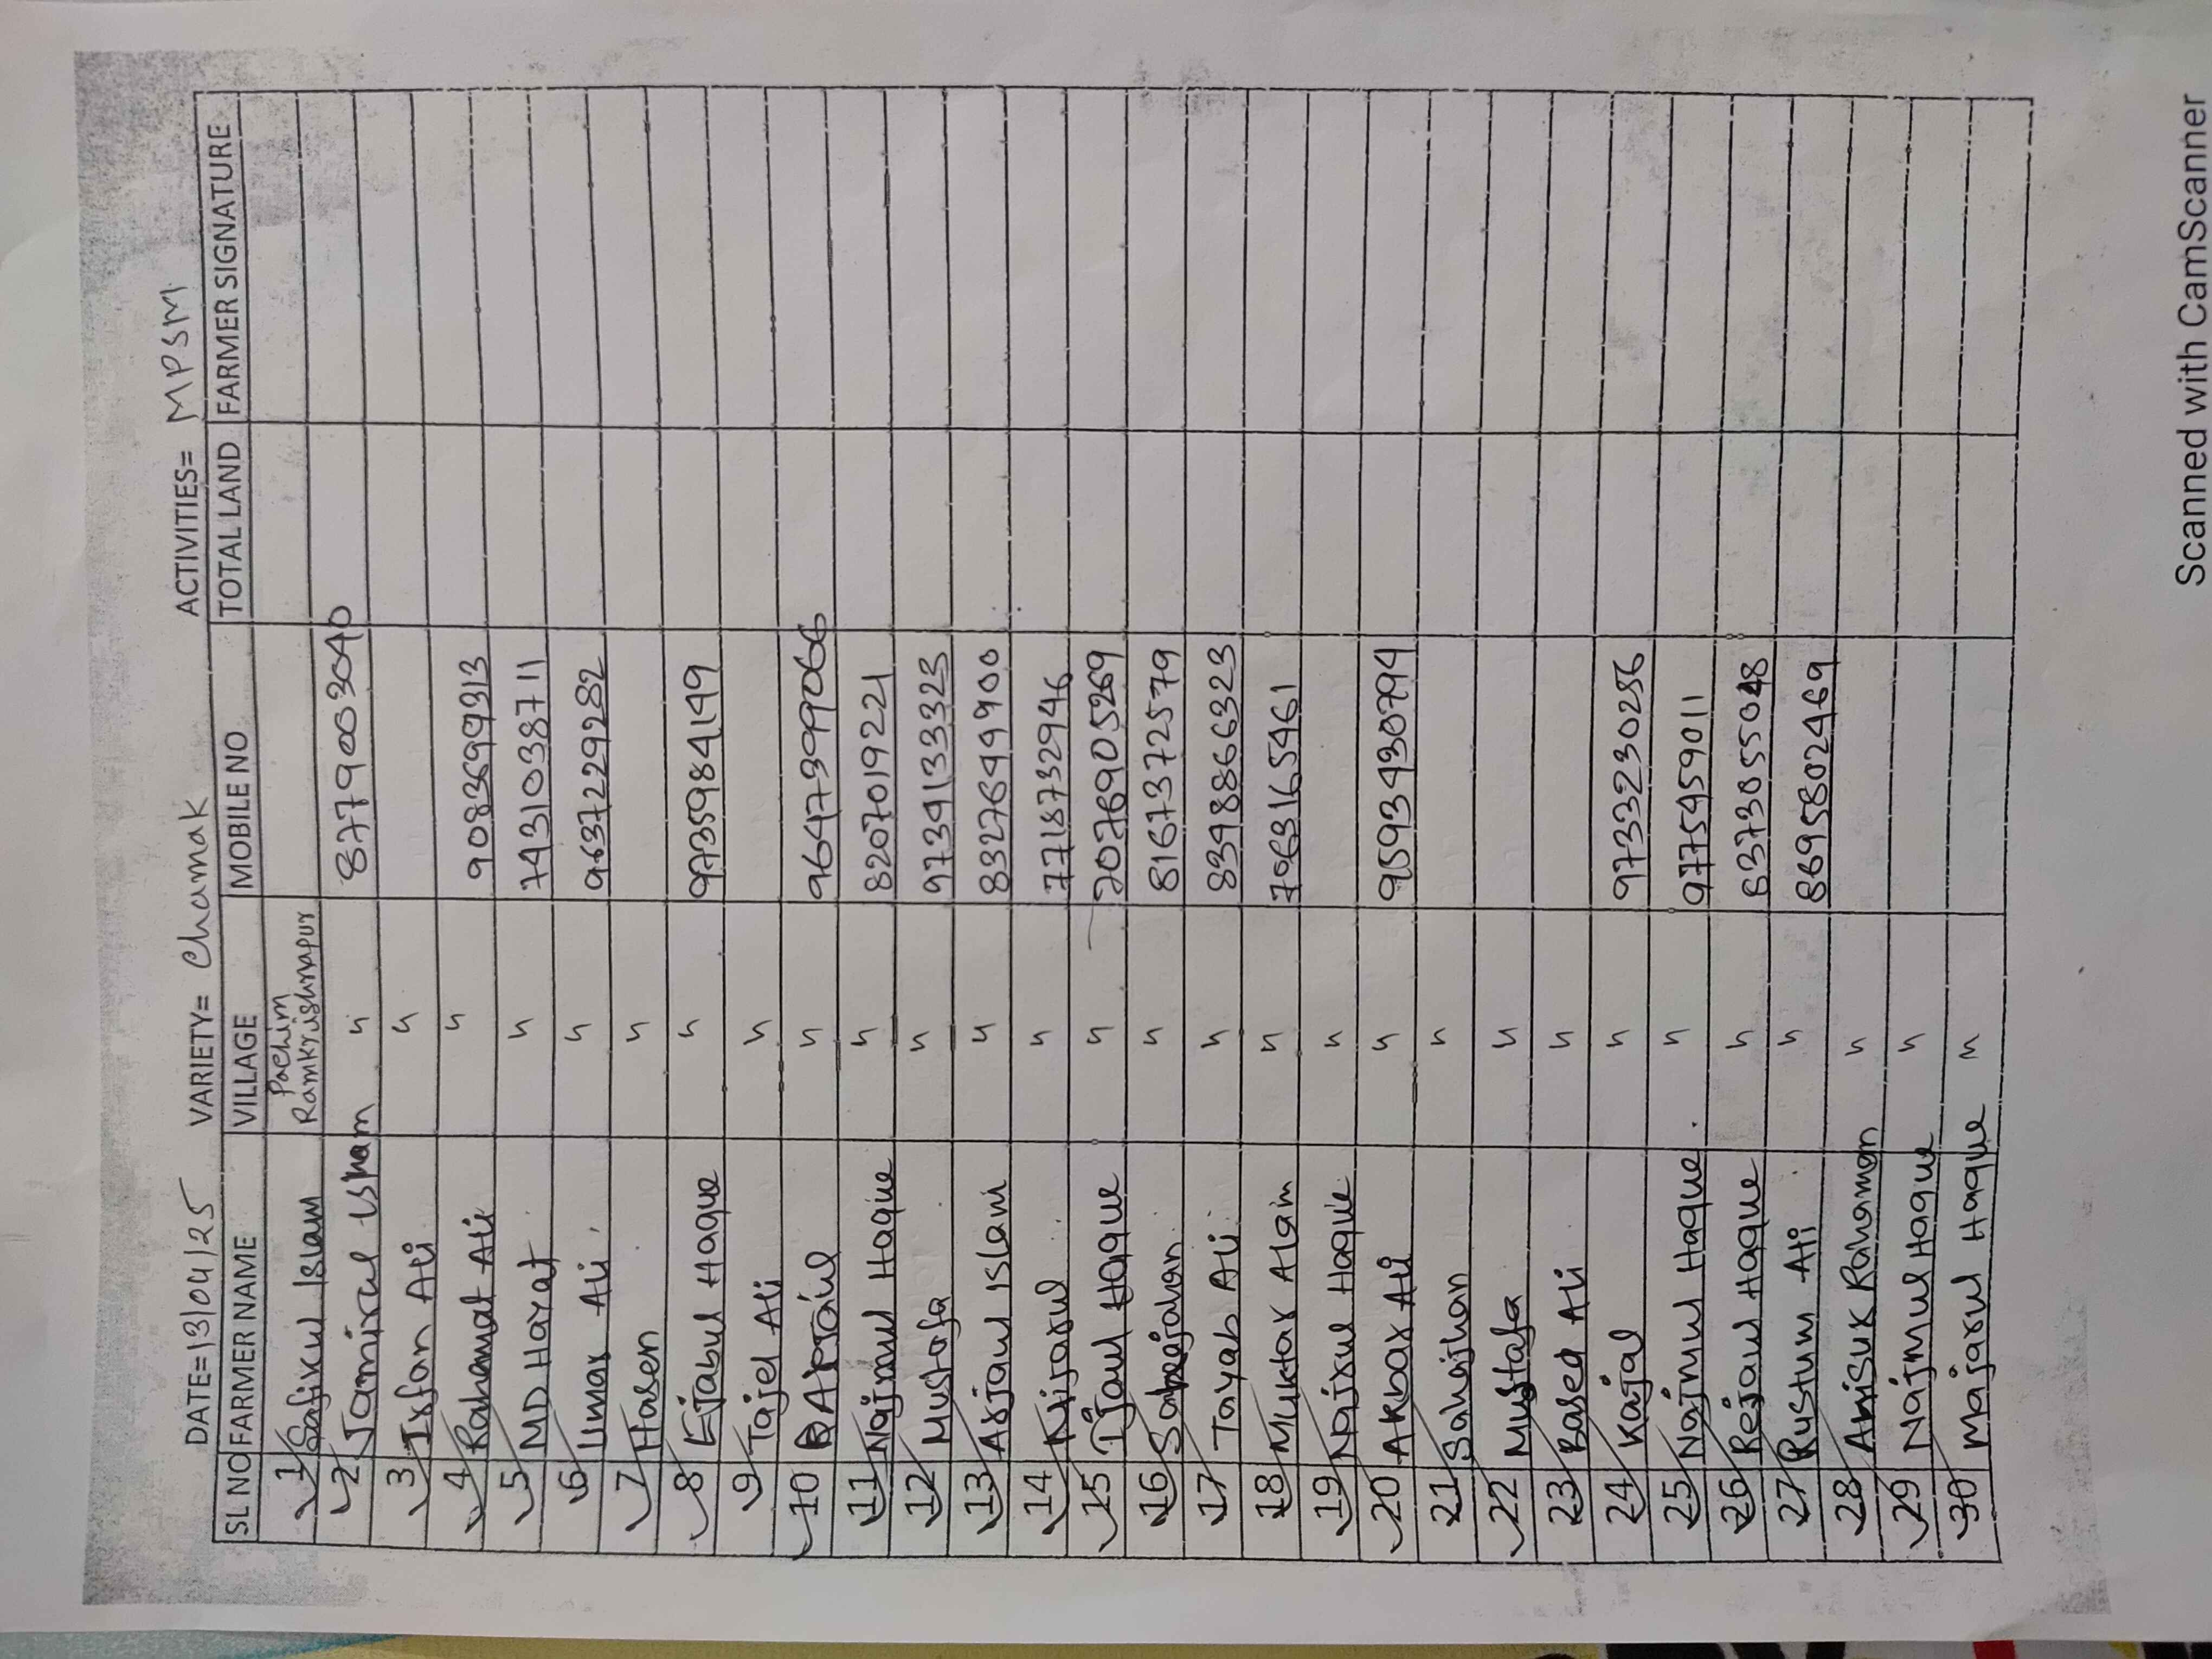 DATE=13/04/25 VARIETY= Chamak ACTIVITIES= MPSM
SL NO FARMER NAME VILLAGE MOBILE NO TOTAL LAND FARMER SIGNATURE
1 Safikul Islam Pachim Ramkrishnapur
2 Jamirul Islam " 8779003040
3 Irfan Ali "
4 Rahamat Ali " 9083699313
5 MD Hayat " 7431038711
6 Umar Ali " 9637229282
7 Hasen "
8 Ejabul Haque " 9735984149
9 Tajel Ali "
10 " 9647399066
11 Najmul Haque " 8207019221
12 Mustafa " 9734133323
13 Arjaul Islam " 8327649900
14 Nijarul " 7718732946
15 Ijaul Haque " 7076905269
16 " 8167372579
17 Tayab Ali " 8348866323
18 Muktar Alam " 7063165461
19 Najrul Haque "
20 Akbar Ali " 9593430794
21 Sahajhan "
22 Mustafa "
23 Based Ali "
24 Kajal " 9733230256
25 Najmul Haque " 9775459011
26 Rejaul Haque " 6373055048
27 Rustum Ali " 8695802469
28 Anisur Rahaman "
29 Najmul Haque "
30 Majarul Haque "
Scanned with CamScanner